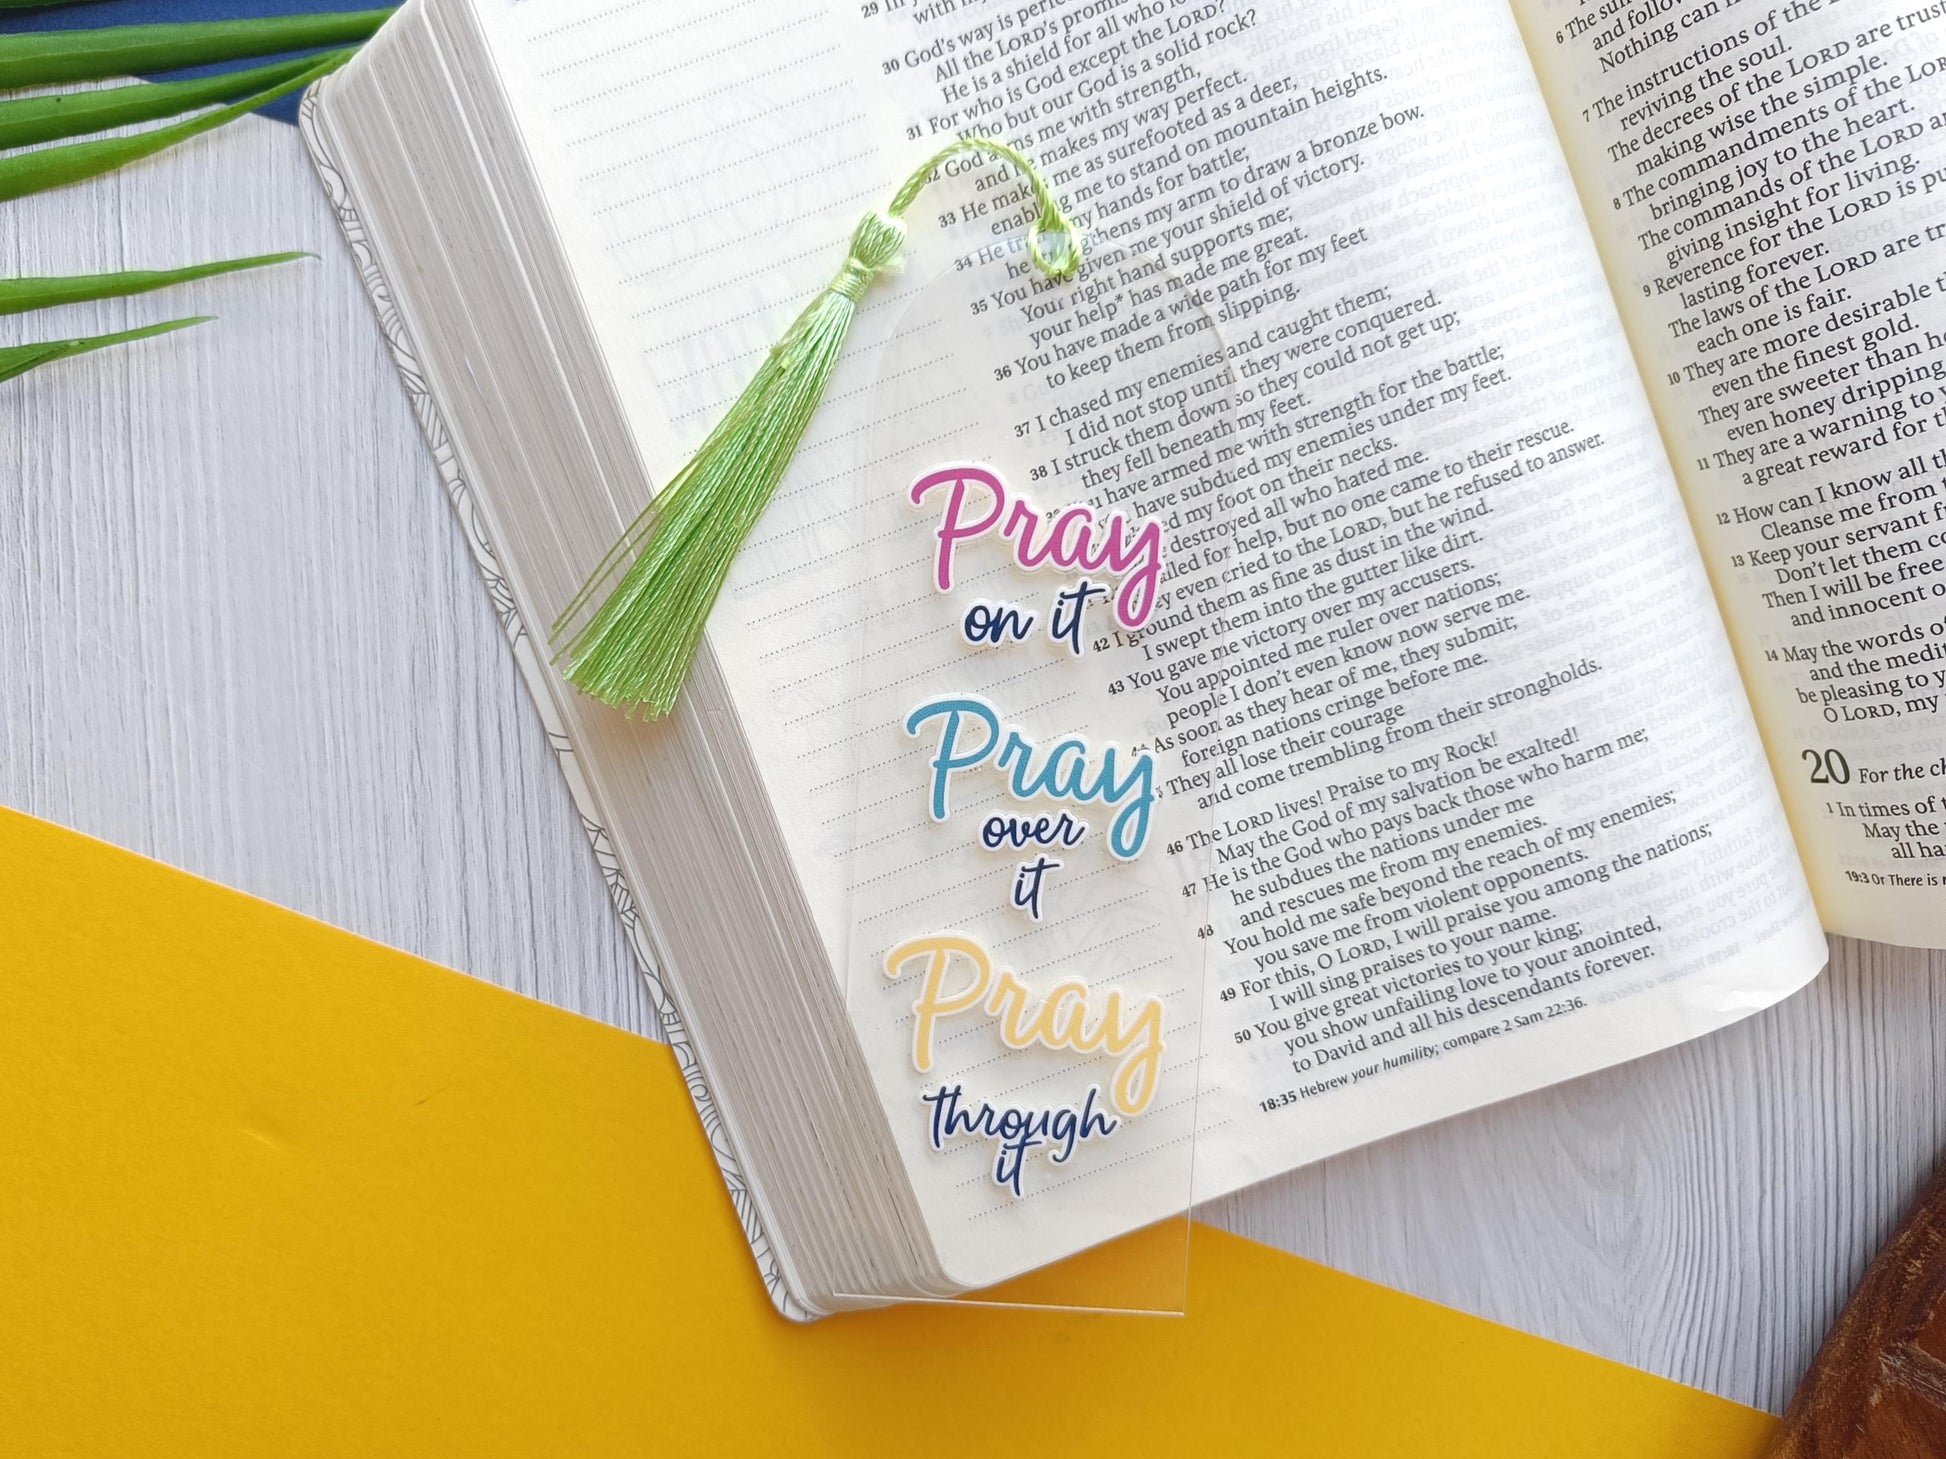 29
with my
30 God's way is perfect.
All the LORD's promises
He is a shield for all who
31 For who is God except the LORD?
Who but our God is a solid rock?
God arms me with strength,
and he makes my way perfect.
33 He makes me as surefooted as a deer,
enabling me to stand on mountain heights.
34 He trains my hands for battle;
he strengthens my arm to draw a bronze bow.
35 You have given me your shield of victory.
Your right hand supports me;
your help* has made me great.
36 You have made a wide path for my feet
to keep them from slipping.
37 I chased my enemies and caught them;
I did not stop until they were conquered.
38 I struck them down so they could not get up;
they fell beneath my feet.
have armed me with strength for the battle;
have subdued my enemies under my feet.
my foot on their necks.
destroyed all who hated me.
for help, but no one came to their rescue.
even cried to the LORD, but he refused to answer.
42 I ground them as fine as dust in the wind.
I swept them into the gutter like dirt.
43 You gave me victory over my accusers.
You appointed me ruler over nations;
people I don't even know now serve me.
As soon as they hear of me, they submit;
foreign nations cringe before me.
They all lose their courage
and come trembling from their strongholds.
46 The LORD lives! Praise to my Rock!
May the God of my salvation be exalted!
47 He is the God who pays back those who harm me;
he subdues the nations under me
48 and rescues me from my enemies.
You hold me safe beyond the reach of my enemies;
you save me from violent opponents.
49 For this, O LORD, I will praise you among the nations;
I will sing praises to your name.
50 You give great victories to your king;
you show unfailing love to your anointed,
to David and all his descendants forever.
18:35 Hebrew your humility; compare 2 Sam 22:36.
Pray
on it
Pray
over
it
Pray
through
it
6 The sun
and follow
Nothing can
7 The instructions of the
reviving the soul.
The decrees of the LORD are trust
making wise the simple.
8 The commandments of the LORD
bringing joy to the heart.
The commands of the LORD
giving insight for living.
9 Reverence for the LORD is pu
lasting forever.
The laws of the LORD are tr
each one is fair.
10 They are more desirable
even the finest gold.
They are sweeter than
even honey dripping
11 They are a warning to
a great reward for
12 How can I know all
Cleanse me from
13 Keep your servant
Don't let them
Then I will be free
and innocent
14 May the words of
and the medit
be pleasing to
O LORD, my
20 For the
1 In times of
May the
all
19:3 Or There is